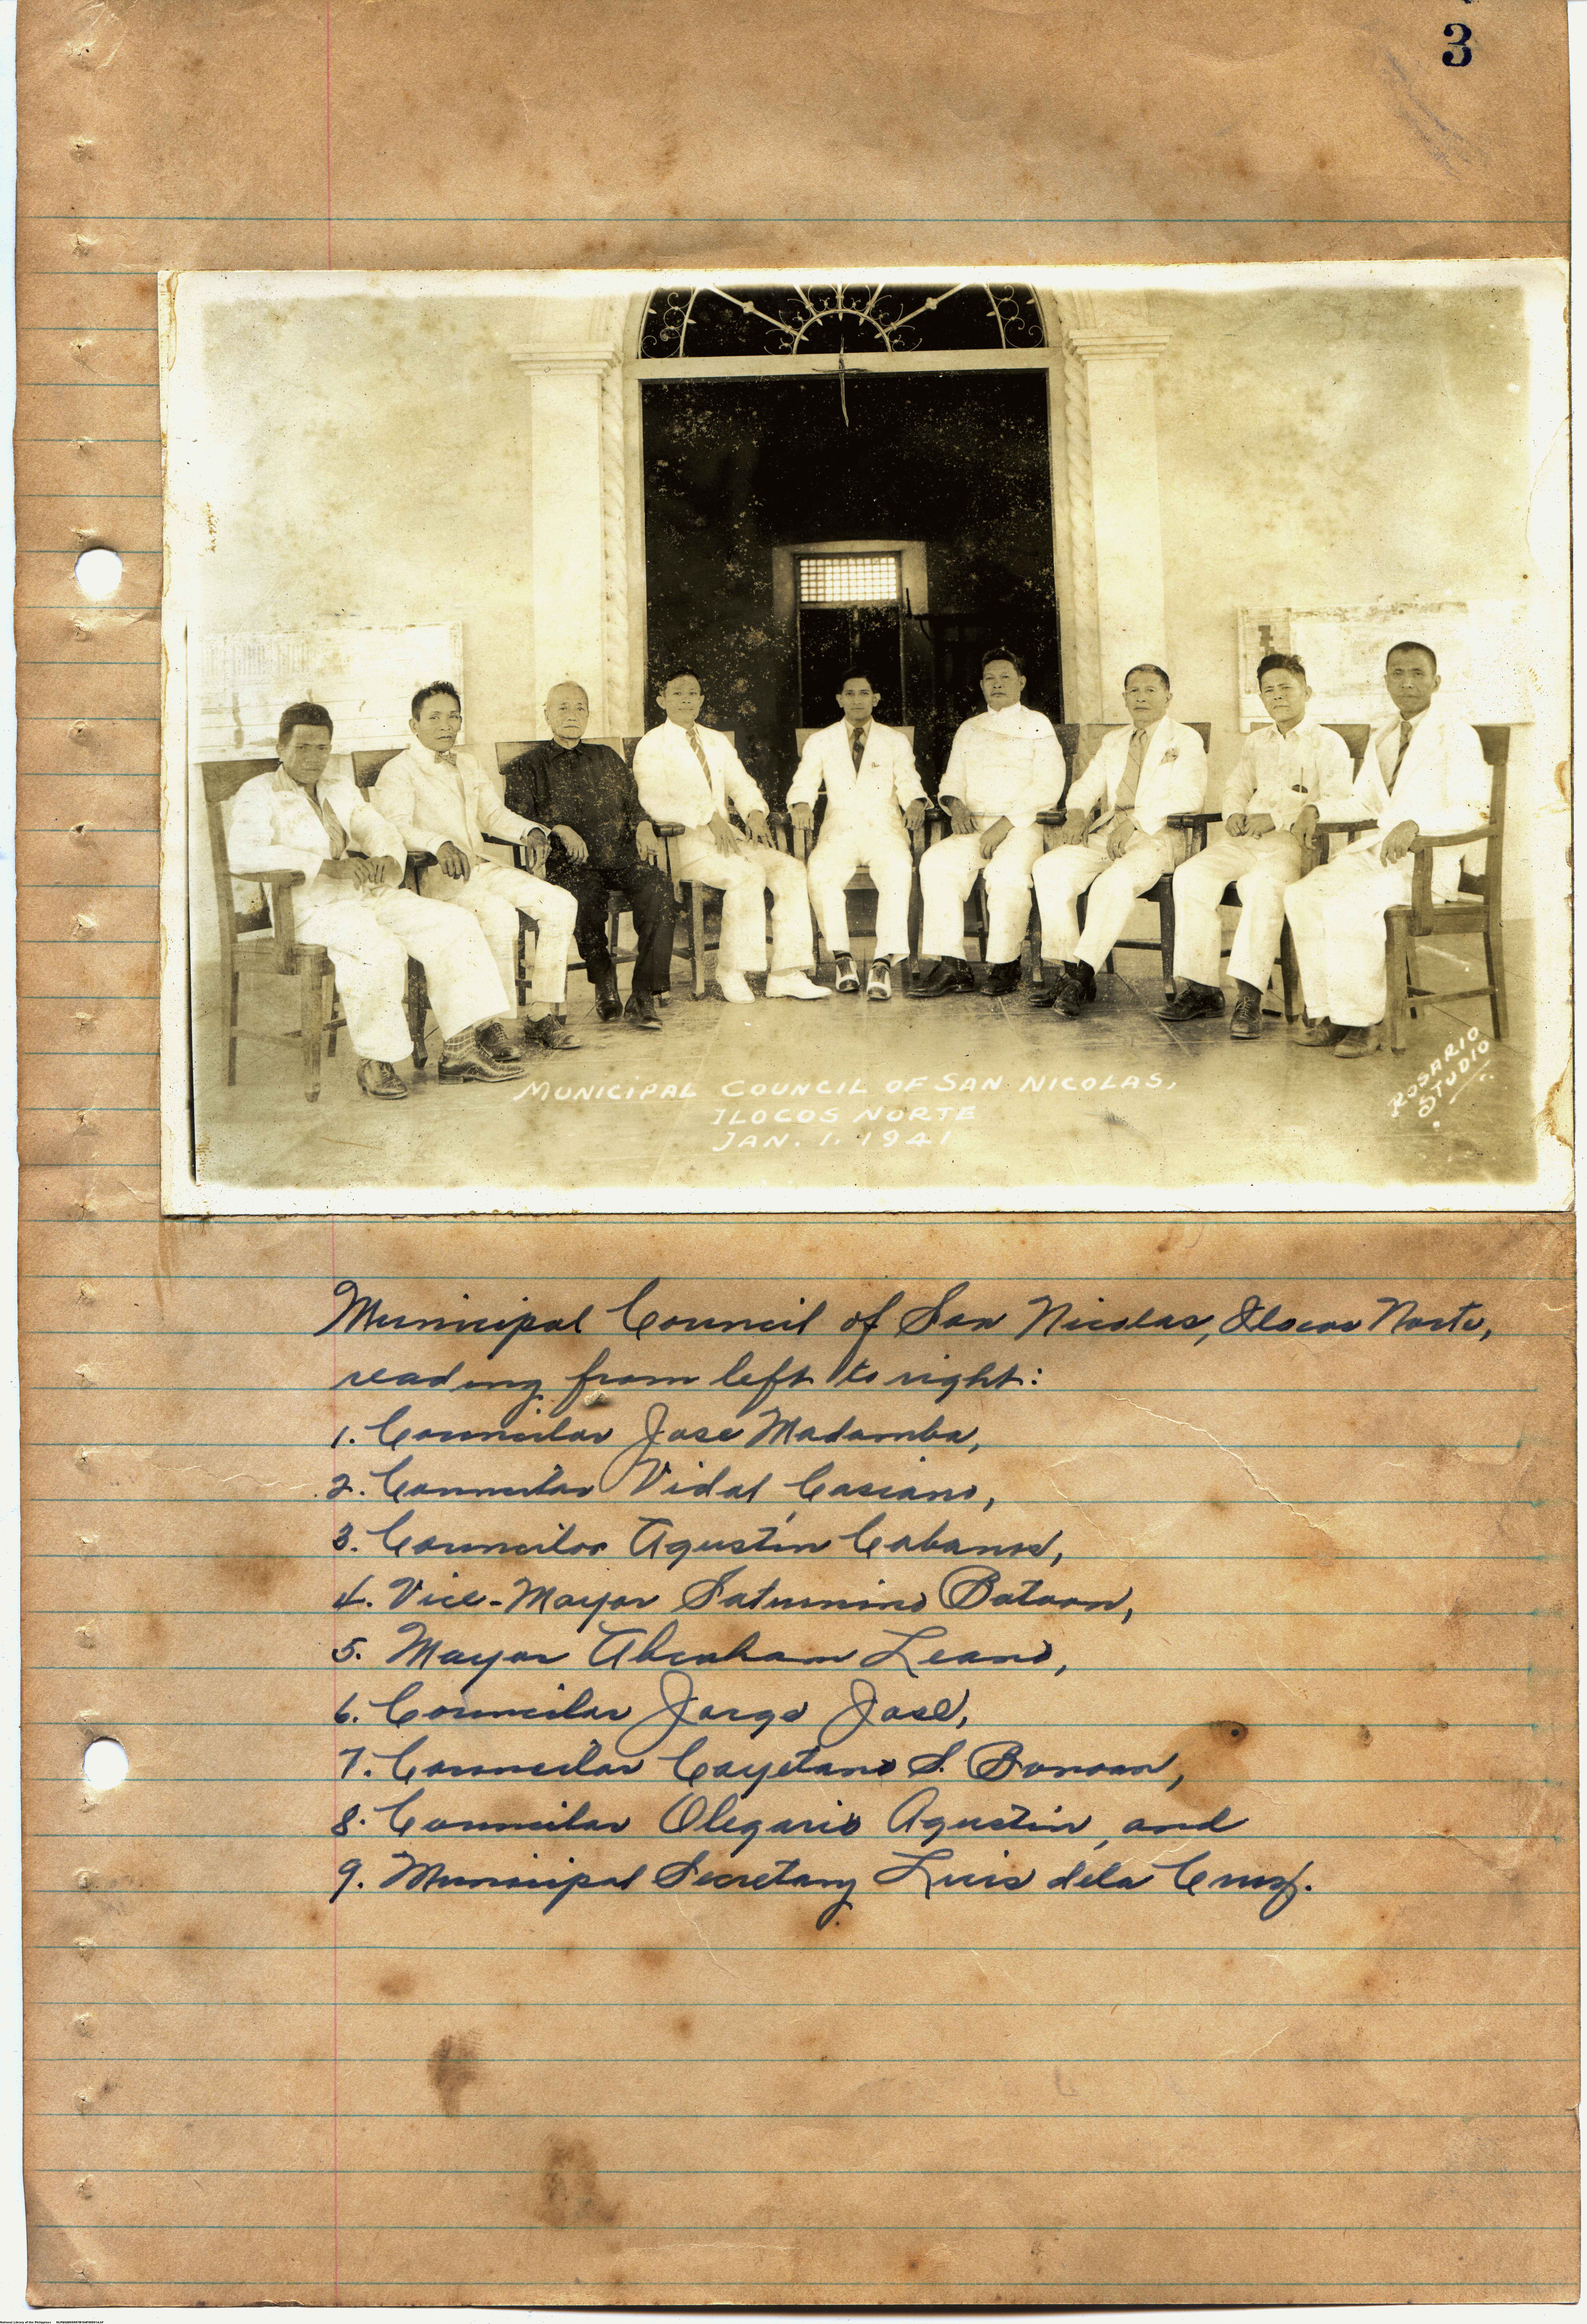 3
MUNICIPAL COUNCIL OF SAN NICOLAS,
ILOCOS NORTE
JAN. 1. 1941
ROSARIO
STUDIO
Municipal Council of San Nicolas, Ilocos Norte,
reading from left to right:
1. Councilor Jose Madamba,
2. Councilor Vidal Casiano,
3. Councilor Agustin Cabanos,
4. Vice-Mayor Saturnino Bataan,
5. Mayor Abraham Leano,
6. Councilor Jorge Jose,
7. Councilor Cayetano S. Bonoan,
8. Councilor Olegario Agustin, and
9. Municipal Secretary Luis dela Cruz.
National Library of the Philippines